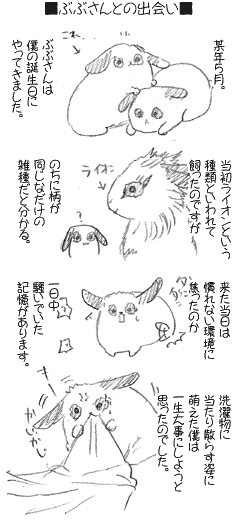 ■ぶぶさんとの出会い■
某年5月。
これ→
ぶぶさんは
僕の誕生日に
やってきました。
当初ライオンという
種類といわれて
飼ったのですが
ライオン
?
のちに柄が
同じなだけの
雑種だと分かる。
来た当日は
慣れない環境に
焦ったのか
ダン
ダン
一日中
騒いでいた
記憶があります。
洗濯物に
当たり散らす姿に
萌えた僕は
一生大事にしようと
思ったのでした。
かじかじ